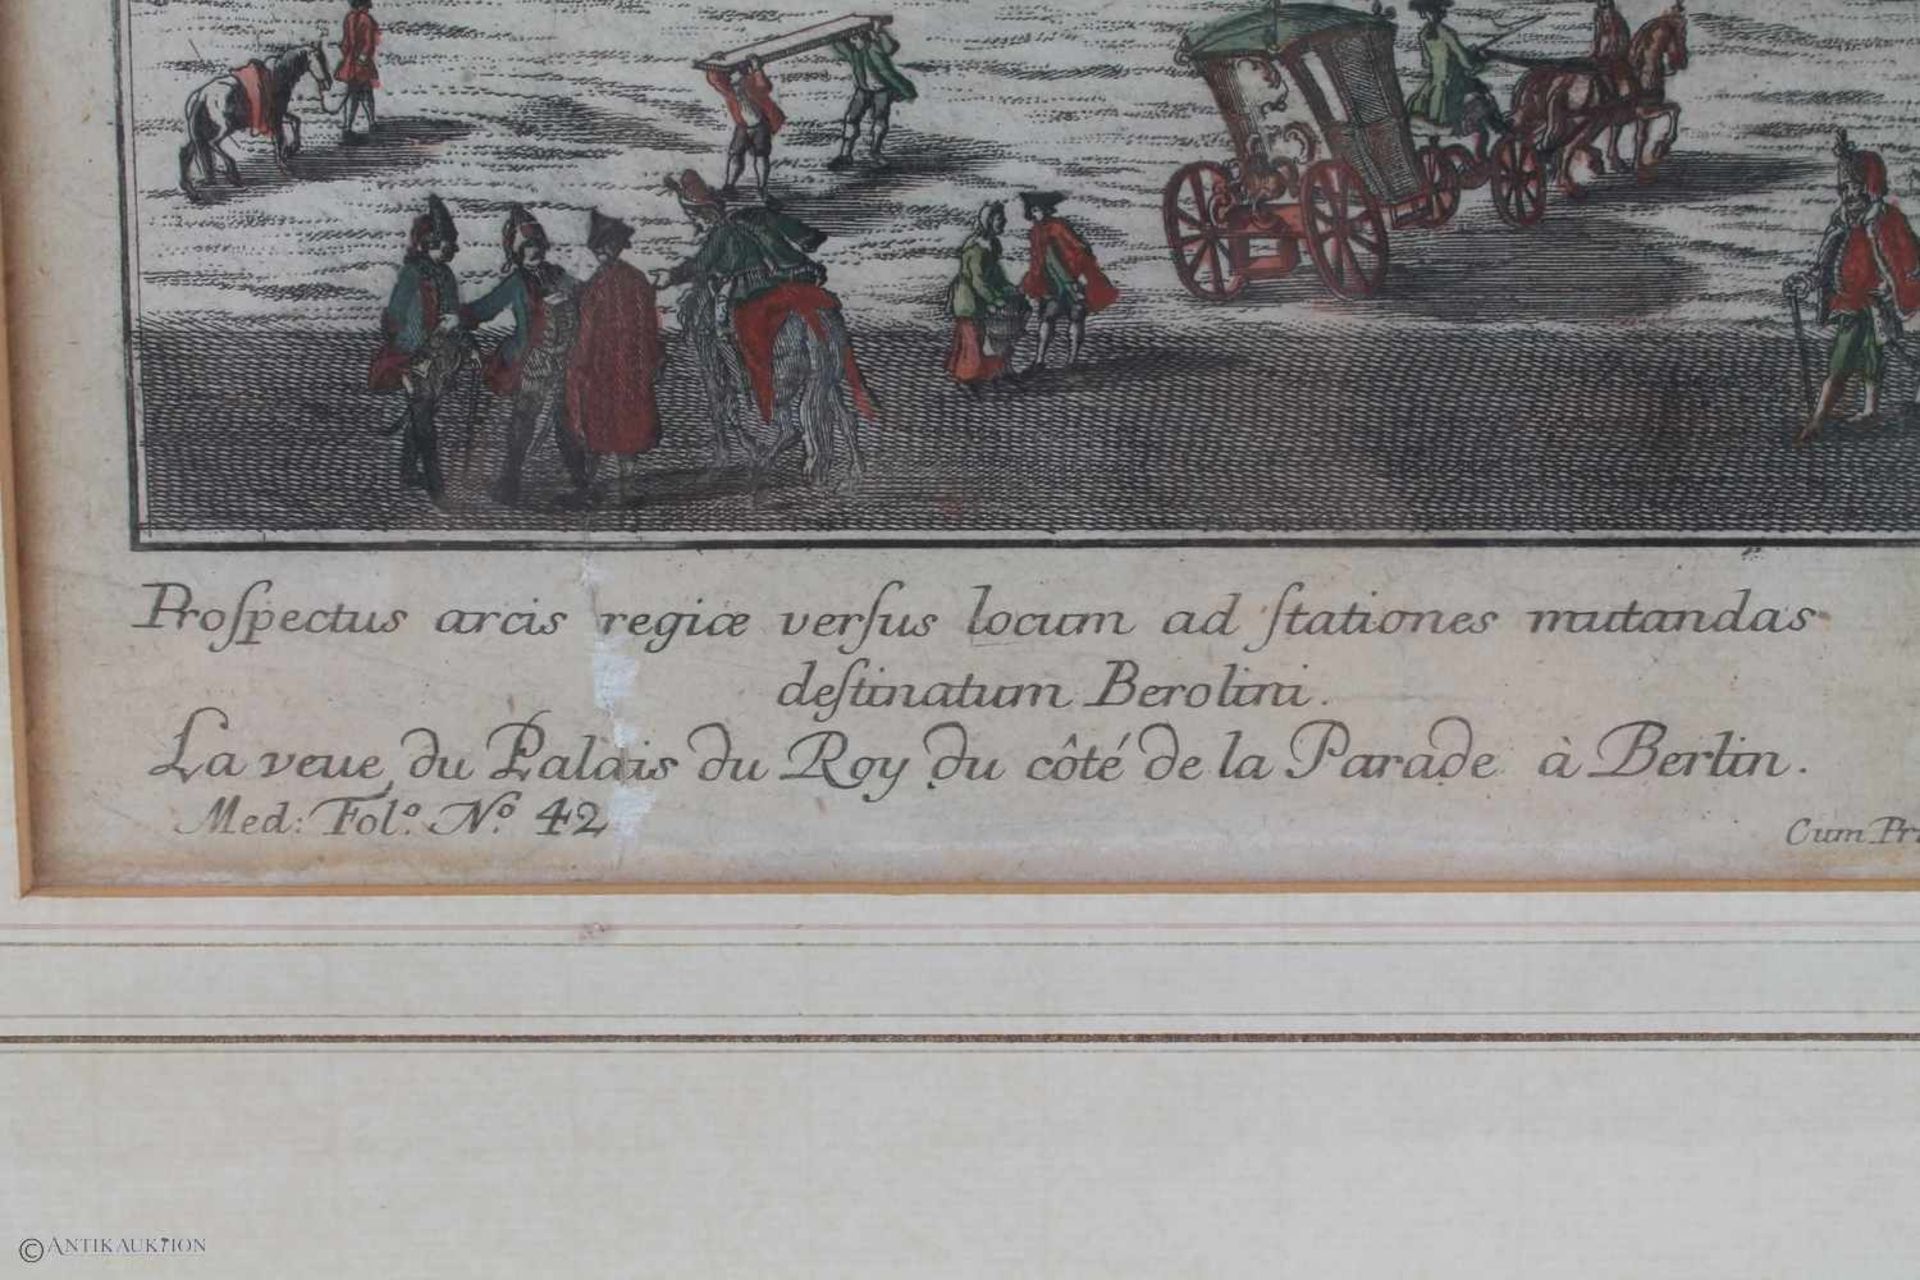 Proſpectus arcis regiæ verſus locum ad ſtationes mutandas
deſtinatum Berolini.
La veue du Palais du Roy du côté de la Parade à Berlin.
Med: Fol.º N.º 42
Cum
© ANTIKAUKTION